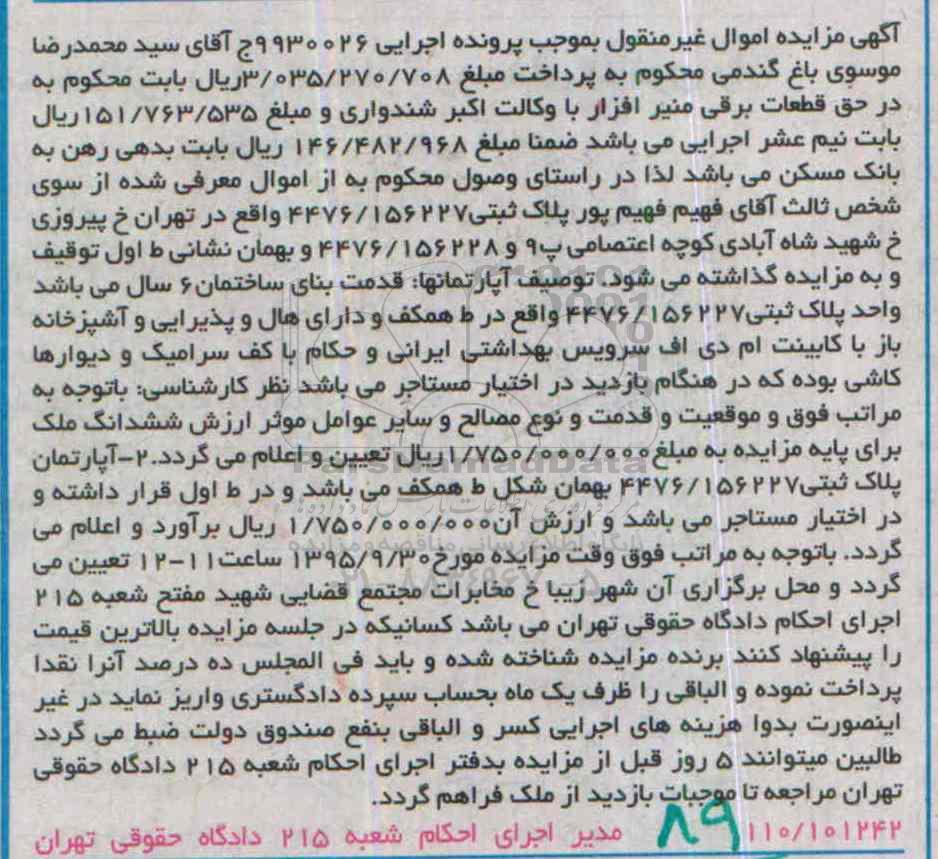 آگهی مزایده اموال غیرمنقول بموجب پرونده اجرایی ۹۹۳۰۰۲۶ج آقای سید محمدرضا
موسوی باغ گندمی محکوم به پرداخت مبلغ ۳/۰۳۵/۲۷۰/۷۰۸ریال بابت محکوم به
در حق قطعات برقی منیر افزار با وکالت اکبر شندواری و مبلغ ۱۵۱/۷۶۳/۵۳۵ریال
بابت نیم عشر اجرایی می باشد ضمنا مبلغ ۱۴۶/۴۸۲/۹۶۸ ریال بابت بدهی رهن به
بانک مسکن می باشد لذا در راستای وصول محکوم به از اموال معرفی شده از سوی
شخص ثالث آقای فهیم فهیم پور پلاک ثبتی۴۴۷۶/۱۵۶۲۲۷ واقع در تهران خ پیروزی
خ شهید شاه آبادی کوچه اعتصامی پ۹ و ۴۴۷۶/۱۵۶۲۲۸ و بهمان نشانی ط اول توقیف
و به مزایده گذاشته می شود. توصیف آپارتمانها: قدمت بنای ساختمان۶ سال می باشد
واحد پلاک ثبتی۴۴۷۶/۱۵۶۲۲۷ واقع در ط همکف و دارای هال و پذیرایی و آشپزخانه
باز با کابینت ام دی اف سرویس بهداشتی ایرانی و حکام با کف سرامیک و دیوارها
کاشی بوده که در هنگام بازدید در اختیار مستاجر می باشد نظر کارشناسی: باتوجه به
مراتب فوق و موقعیت و قدمت و نوع مصالح و سایر عوامل موثر ارزش ششدانگ ملک
برای پایه مزایده به مبلغ۱/۷۵۰/۰۰۰/۰۰۰ریال تعیین و اعلام می گردد.۲-آپارتمان
پلاک ثبتی۴۴۷۶/۱۵۶۲۲۷ بهمان شکل ط همکف می باشد و در ط اول قرار داشته و
در اختیار مستاجر می باشد و ارزش آن۱/۷۵۰/۰۰۰/۰۰۰ ریال برآورد و اعلام می
گردد. باتوجه به مراتب فوق وقت مزایده مورخ۱۳۹۵/۹/۳۰ ساعت۱۱-۱۲ تعیین می
گردد و محل برگزاری آن شهر زیبا خ مخابرات مجتمع قضایی شهید مفتح شعبه ۲۱۵
اجرای احکام دادگاه حقوقی تهران می باشد کسانیکه در جلسه مزایده بالاترین قیمت
را پیشنهاد کنند برنده مزایده شناخته شده و باید فی المجلس ده درصد آنرا نقدا
پرداخت نموده و الباقی را ظرف یک ماه بحساب سپرده دادگستری واریز نماید در غیر
اینصورت بدوا هزینه های اجرایی کسر و الباقی بنفع صندوق دولت ضبط می گردد
طالبین میتوانند ۵ روز قبل از مزایده بدفتر اجرای احکام شعبه ۲۱۵ دادگاه حقوقی
تهران مراجعه تا موجبات بازدید از ملک فراهم گردد.
۱۱۰/۱۰۱۲۴۲ ۸۹ مدیر اجرای احکام شعبه ۲۱۵ دادگاه حقوقی تهران
ParsNamadData